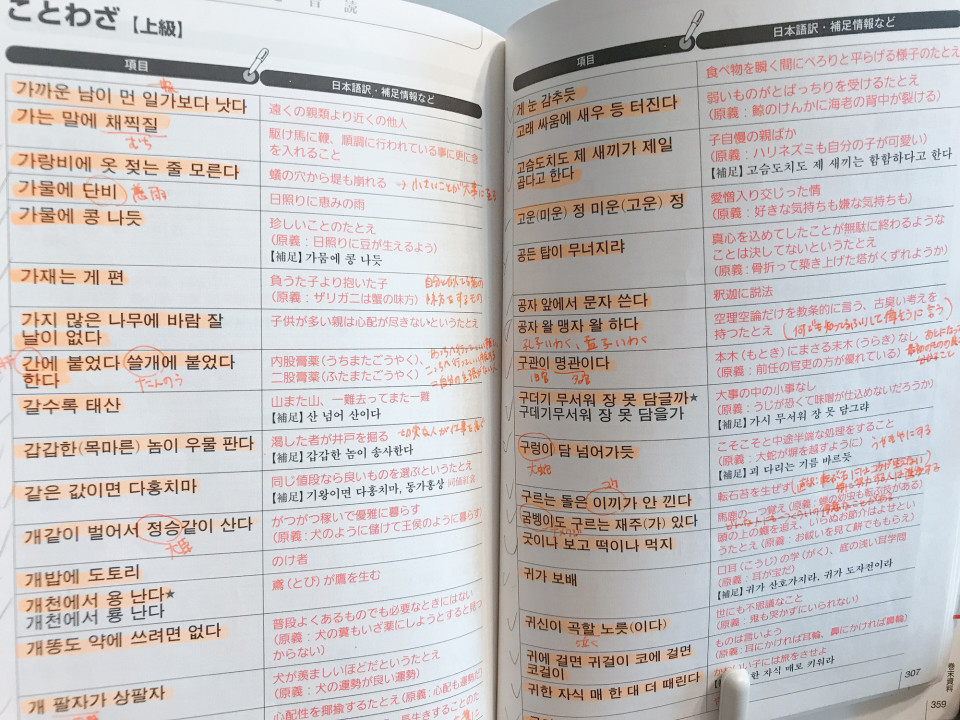 ことわざ【上級】
項目
日本語訳・補足情報など
가까운 남이 먼 일가보다 낫다
遠くの親類より近くの他人
가는 말에 채찍질
むち
駆け馬に鞭、順調に行われている事に更に念
を入れること
가랑비에 옷 젖는 줄 모른다
蟻の穴から堤も崩れる
가물에 단비
日照りに恵みの雨
가물에 콩 나듯
珍しいことのたとえ
(原義:日照りに豆が生えるよう)
【補足】가뭄에 콩 나듯
가재는 게 편
負うた子より抱いた子
(原義:ザリガニは蟹の味方)
가지 많은 나무에 바람 잘
날이 없다
子供が多い親は心配が尽きないというたとえ
간에 붙었다 쓸개에 붙었다
한다
たんのう
内股膏薬(うちまたごうやく)、
二股膏薬(ふたまたごうやく)
갈수록 태산
山また山、一難去ってまた一難
【補足】산 넘어 산이다
갑갑한(목마른) 놈이 우물 판다
渇した者が井戸を掘る
【補足】갑갑한 놈이 송사한다
같은 값이면 다홍치마
同じ値段なら良いものを選ぶというたとえ
【補足】기왕이면 다홍치마, 동가홍상
개같이 벌어서 정승같이 산다
がつがつ稼いで優雅に暮らす
(原義:犬のように儲けて王侯のように暮らす)
개밥에 도토리
のけ者
개천에서 용 난다★
개천에서 룡 난다
鳶(とび)が鷹を生む
개똥도 약에 쓰려면 없다
普段よくあるものでも必要なときにはない
(原義:犬の糞もいざ薬にしようとすると見つ
からない)
개 팔자가 상팔자
犬が羨ましいほどだというたとえ
(原義:犬の運勢が良い運勢)
項目
日本語訳・補足情報など
게 눈 감추듯
食べ物を瞬く間にぺろりと平らげる様子のたとえ
고래 싸움에 새우 등 터진다
弱いものがとばっちりを受けるたとえ
(原義:鯨のけんかに海老の背中が裂ける)
고슴도치도 제 새끼가 제일
곱다고 한다
子自慢の親ばか
(原義:ハリネズミも自分の子が可愛い)
【補足】고슴도치도 제 새끼는 함함하다고 한다
고운(미운) 정 미운(고운) 정
愛憎入り交じった情
(原義:好きな気持ちも嫌な気持ちも)
공든 탑이 무너지랴
真心を込めてしたことが無駄に終わるような
ことは決してないというたとえ
(原義:骨折って築き上げた塔がくずれようか)
공자 앞에서 문자 쓴다
釈迦に説法
공자 왈 맹자 왈 하다
孔子いわく、孟子いわく
空理空論だけを教条的に言う、古臭い考えを
持つたとえ
구관이 명관이다
旧官 名官
本木(もとき)にまさる末木(うらき)なし
(原義:前任の官吏の方が優れている)
구더기 무서워 장 못 담글까★
구데기무서워 장 못 담을가
大事の中の小事なし
(原義:うじが恐くて味噌が仕込めないだろうか)
【補足】가시 무서워 장 못 담그랴
구렁이 담 넘어가듯
大蛇
こそこそと中途半端な処理をすること
(原義:大蛇が塀を越すように)
【補足】괴 다리는 기름 바르듯
구르는 돌은 이끼가 안 낀다
転石苔を生ぜず
굼벵이도 구르는 재주(가) 있다
馬鹿の一つ覚え(原義:蝉の幼虫も転ぶ技がある)
굿이나 보고 떡이나 먹지
頭の上の蠅を追え、いらぬお節介はよせとい
うたとえ(原義:お祓いを見て餅でももらえ)
귀가 보배
口耳(こうじ)の学(がく)、底の浅い耳学問
(原義:耳が宝だ)
【補足】귀가 산호가지라, 귀가 도자전이라
귀신이 곡할 노릇(이다)
泣く
世にも不思議なこと
(原義:鬼も哭かずにいられない)
귀에 걸면 귀걸이 코에 걸면
코걸이
ものは言いよう
(原義:耳にかければ耳輪、鼻にかければ鼻輪)
귀한 자식 매 한 대 더 때린다
いい子には旅をさせよ
한 자식 매로 키워라
307
巻末資料
359